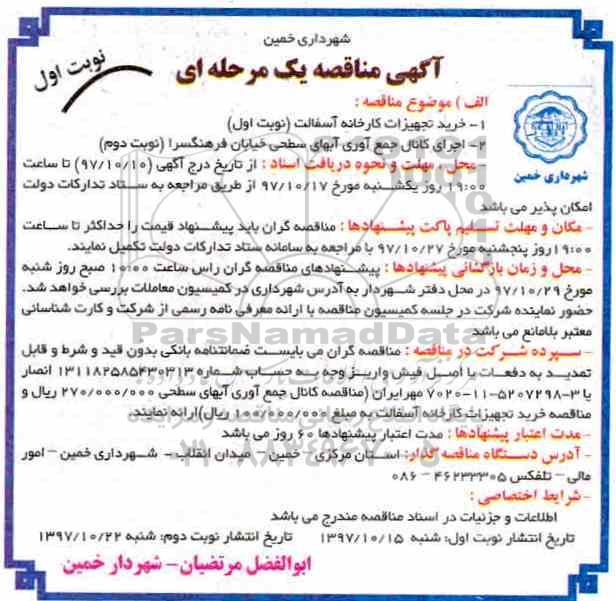 شهرداری خمین
آگهی مناقصه یک مرحله ای
نوبت اول
شهرداری خمین
الف ) موضوع مناقصه :
۱- خرید تجهیزات کارخانه آسفالت (نوبت اول)
۲- اجرای کانال جمع آوری آبهای سطحی خیابان فرهنگسرا (نوبت دوم)
- محل ، مهلت و نحوه دریافت اسناد : از تاریخ درج آگهی (۹۷/۱۰/۱۰) تا ساعت
۱۹:۰۰ روز یکشنبه مورخ ۹۷/۱۰/۱۷ از طریق مراجعه به ستاد تدارکات دولت
امکان پذیر می باشد
- مکان و مهلت تسلیم پاکت پیشنهادها : مناقصه گران باید پیشنهاد قیمت را حداکثر تا ساعت
۱۹:۰۰روز پنجشنبه مورخ ۹۷/۱۰/۲۷ با مراجعه به سامانه ستاد تدارکات دولت تکمیل نمایند.
- محل و زمان بازگشائی پیشنهادها : پیشنهادهای مناقصه گران راس ساعت ۱۰:۰۰ صبح روز شنبه
مورخ ۹۷/۱۰/۲۹ در محل دفتر شهردار به آدرس شهرداری در کمیسیون معاملات بررسی خواهد شد.
حضور نماینده شرکت در جلسه کمیسیون مناقصه با ارائه معرفی نامه رسمی از شرکت و کارت شناسائی
معتبر بلامانع می باشد
ParsNamadData
- سپرده شرکت در مناقصه : مناقصه گران می بایست ضمانتنامه بانکی بدون قید و شرط و قابل
تمدید به دفعات یا اصل فیش واریز وجه به حساب شماره ۱۳۱۱۸۲۵۸۵۴۳۰۳۱۳ انصار
یا ۳-۵۲۰۷۲۹۸-۱۱-۷۰۲۰ مهرایران (مناقصه کانال جمع آوری آبهای سطحی ۲۷۰/۰۰۰/۰۰۰ ریال و
مناقصه خرید تجهیزات کارخانه آسفالت به مبلغ ۱۰۰/۰۰۰/۰۰۰ ریال)ارائه نمایند.
- مدت اعتبار پیشنهادها : مدت اعتبار پیشنهادها ۶۰ روز می باشد
- آدرس دستگاه مناقصه گذار: استان مرکزی - خمین - میدان انقلاب - شهرداری خمین - امور
مالی - تلفکس ۴۶۲۳۳۳۰۵ - ۰۸۶
- شرایط اختصاصی :
اطلاعات و جزئیات در اسناد مناقصه مندرج می باشد
تاریخ انتشار نوبت اول: شنبه ۱۳۹۷/۱۰/۱۵ تاریخ انتشار نوبت دوم: شنبه ۱۳۹۷/۱۰/۲۲
ابوالفضل مرتضیان- شهردار خمین